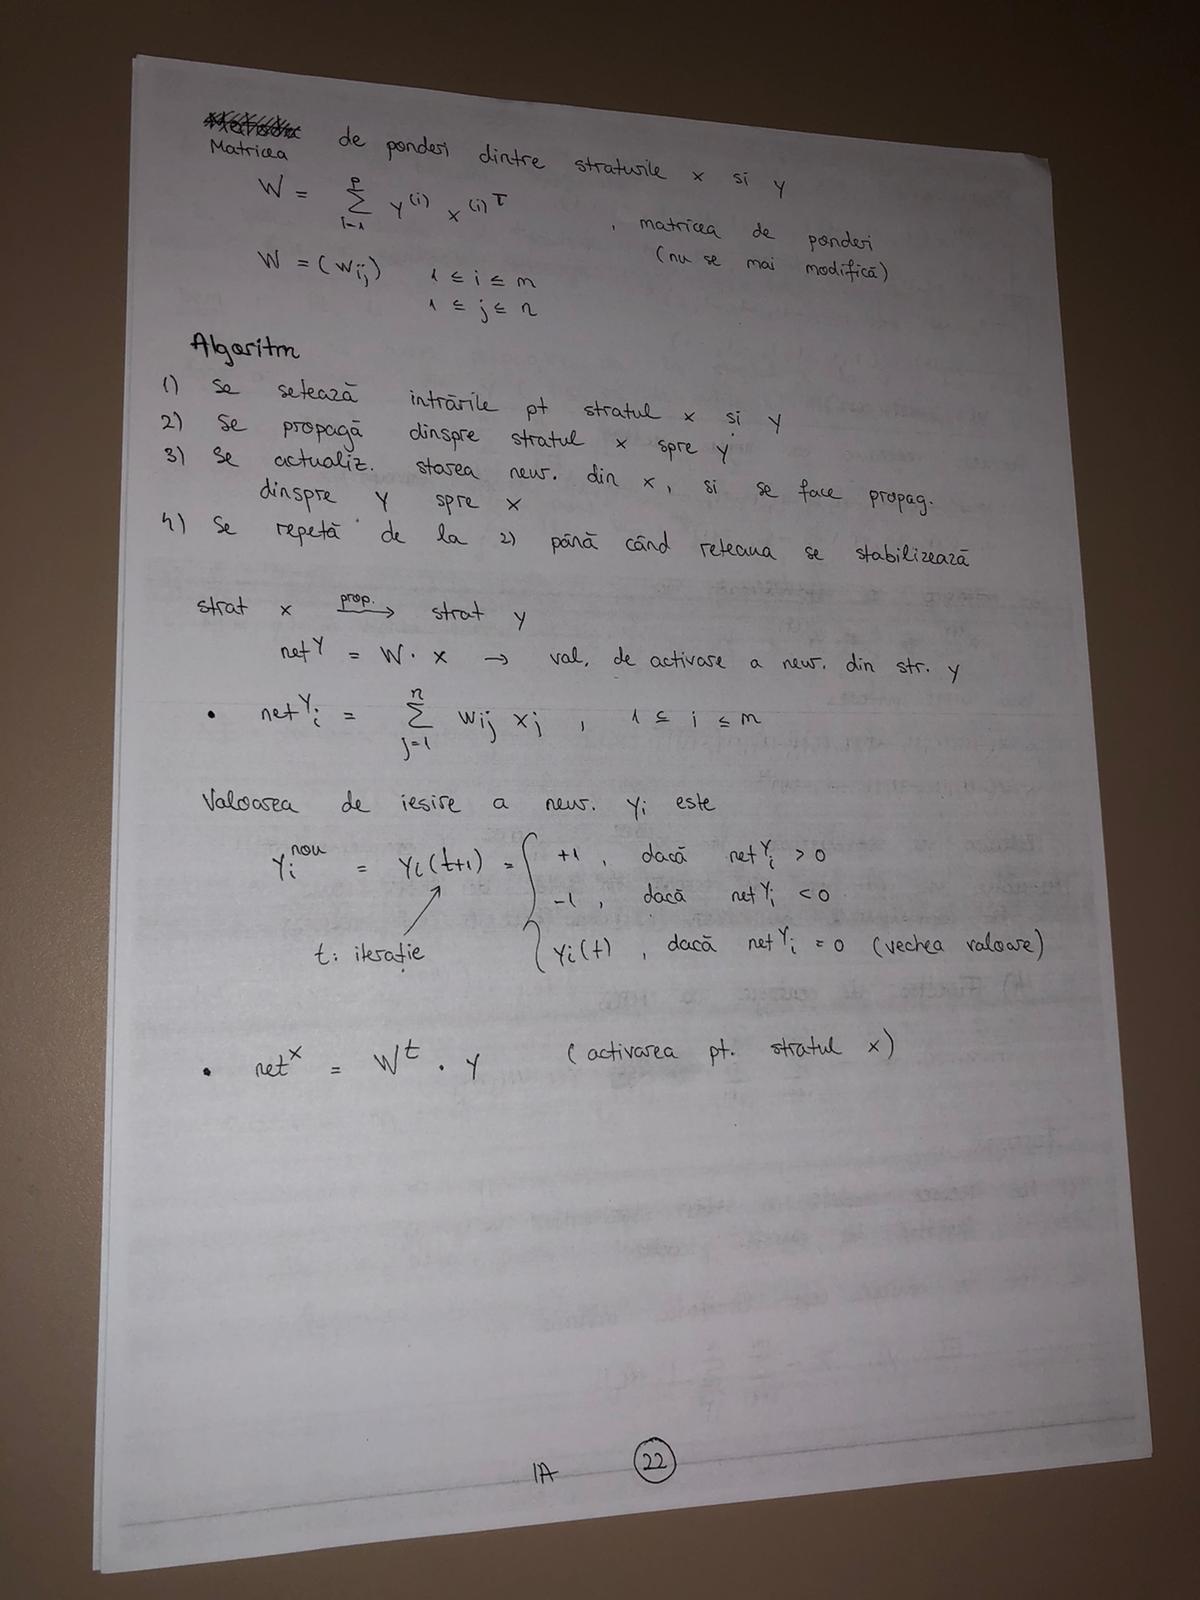 Matricea de ponderi dintre straturile x si y
W = Σ_{i=1}^{P} y^(i) x^(i)T , matricea de ponderi
(nu se mai modifică)
W = (w_ij) 1 ≤ i ≤ m
1 ≤ j ≤ n
Algoritm
1) Se setează intrările pt stratul x și y
2) Se propagă dinspre stratul x spre y
3) Se actualiz. starea neur. din x, si se face propag.
dinspre y spre x
4) Se repetă de la 2) până când reteaua se stabilizează
strat x prop. → strat y
net^y = W · x → val. de activare a neur. din str. y
• net^y_i = Σ_{j=1}^{n} w_ij x_j , 1 ≤ i ≤ m
Valoarea de iesire a neur. y_i este
y_i^nou = y_i(t+1) = { +1 , dacă net^y_i > 0
-1 , dacă net^y_i < 0
y_i(t) , dacă net^y_i = 0 (vechea valoare)
t: iterație
• net^x = W^t · y (activarea pt. stratul x)
IA 22